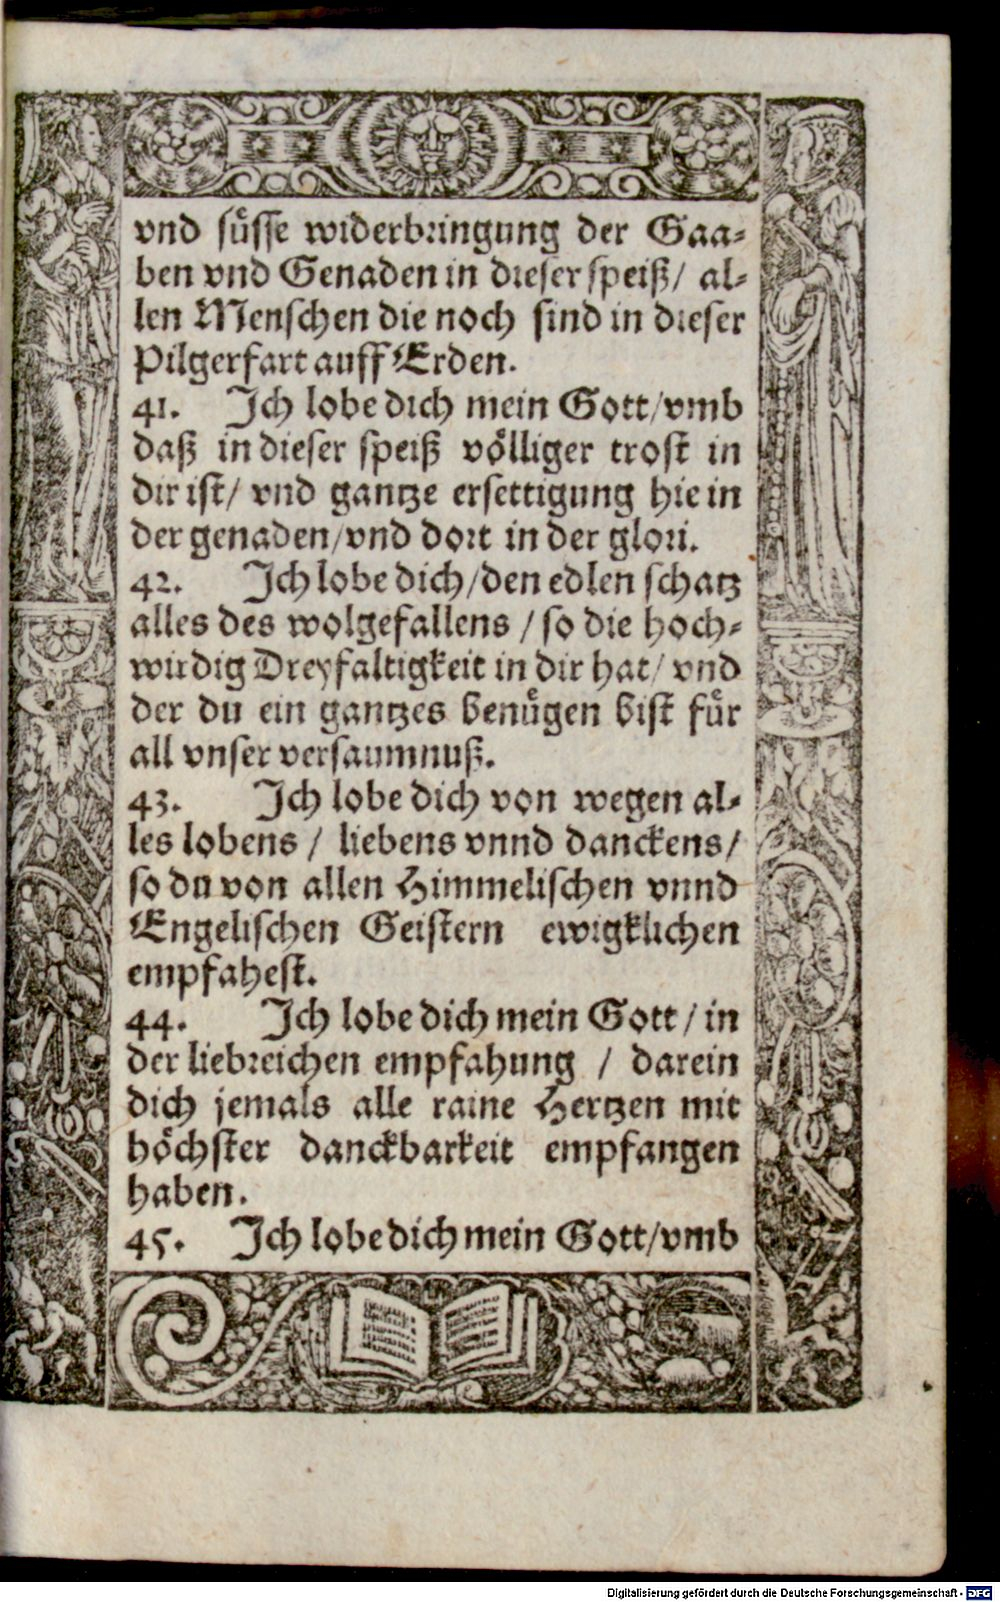 vnd süsse widerbringung der Gaa-
ben vnd Genaden in dieser speiß/ al-
len Menschen die noch sind in dieser
Pilgerfart auff Erden.
41. Ich lobe dich mein Gott/vmb
daß in dieser speiß völliger trost in
dir ist/ vnd gantze ersettigung hie in
der genaden/vnd dort in der glori.
42. Ich lobe dich/den edlen schatz
alles des wolgefallens / so die hoch-
wirdig Dreyfaltigkeit in dir hat/ vnd
der du ein gantzes benügen bist für
all vnser versaumnuß.
43. Ich lobe dich von wegen al-
les lobens / liebens vnnd danckens/
so du von allen Himmelischen vnnd
Engelischen Geistern ewigklichen
empfahest.
44. Ich lobe dich mein Gott / in
der liebreichen empfahung / darein
dich jemals alle raine Hertzen mit
höchster danckbarkeit empfangen
haben.
45. Ich lobe dich mein Gott/vmb
Digitalisierung gefördert durch die Deutsche Forschungsgemeinschaft - DFG